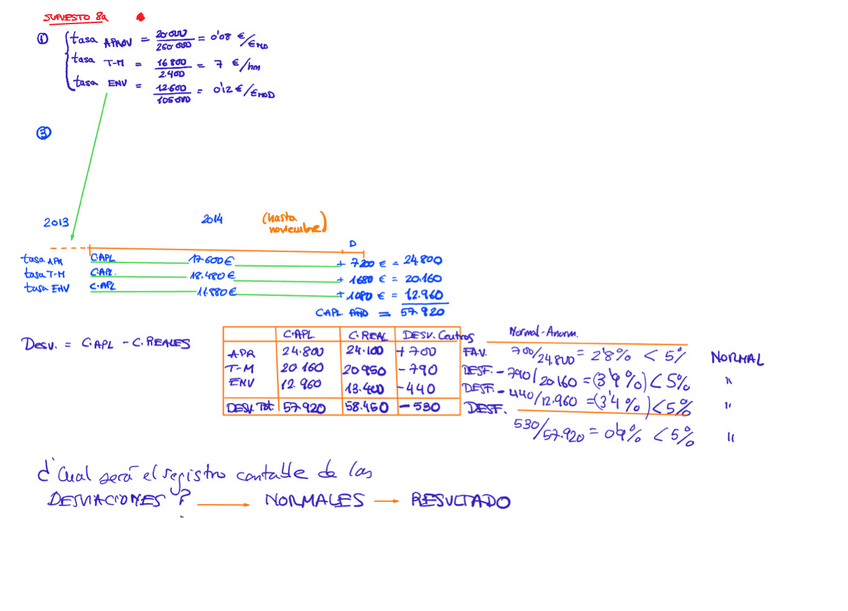 SUPUESTO 8a
① tasa APROV = 20000/250000 = 0'08 €/€MD
tasa T-M = 16800/2400 = 7 €/hm
tasa ENV = 12600/105000 = 0'12 €/€MOD
③
2013 2014 (hasta noviembre)
D
tasa APR C.APL 17.600€ + 7200 € = 24.800
tasa T-M C.APL. 18.480€ + 1680 € = 20.160
tasa ENV C.APL 11.880€ + 1080 € = 12.960
CAPL AÑO = 57.920
Desv. = C.APL - C.REALES
C.APL C.REAL DESV. Centros Normal-Anorm.
APR 24.800 24.100 +700 FAV. 700/24.800 = 2'8% < 5% NORMAL
T-M 20 160 20 950 -790 DESF. -790/20160 = (3'9%) < 5% "
ENV 12.960 13.400 -440 DESF. -440/12.960 = (3'4%) < 5% "
DESV. Tot 57.920 58.450 -530 DESF. 530/57.920 = 0'9% < 5% "
¿Cual será el registro contable de las
DESVIACIONES? → NORMALES → RESULTADO